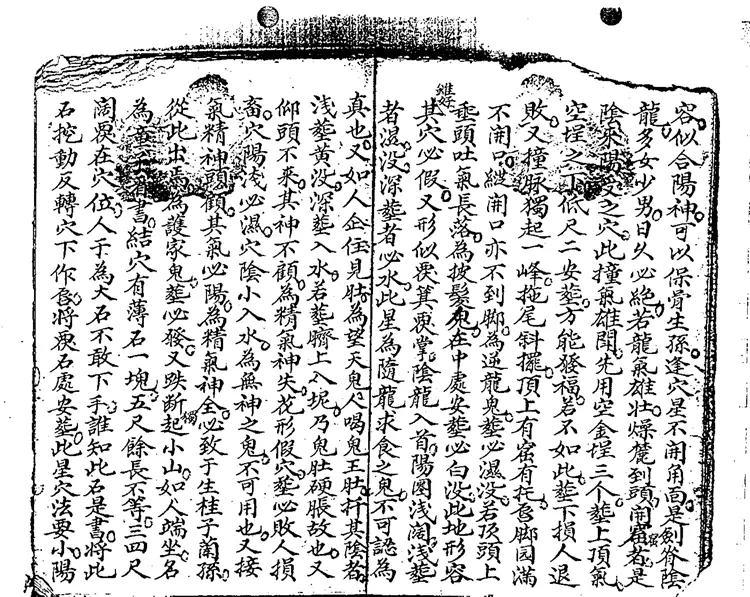 容似合陽神可以保骨生孫逢穴星不開角面是劍脊陰
龍多女少男日久必絕若龍氣雄壯燥麓到頭開窟者是
陰來陽受之穴此撞氣雄閗先用空金埕三个塟上頂氣
空埕之丁低尺二安塟方能發福若不如此塟下損人退
敗又撞脉獨起一峰拖尾斜擺頂上有窟有托唇脚园滿
不開口縱開口亦不到脚為逆龍鬼塟必濕没若頂頭上
垂頭吐氣長落為披髮鬼在中處安塟必白没此地形容
其穴必假又形似淚箕淚掌陰龍入首陽圏浅濶浅塟
者濕没深塟者必水此星為隨龍求食之鬼不可認為
真也又如人企住見肚為望天鬼人喝鬼王肚扦其陰者
浅塟黄没深塟入水若塟臍上入坭乃鬼肚硬脹故也又
仰頭不来其神不顧為精氣神失花形假穴塟必敗人損
畜穴陽浅必濕穴陰小入水為無神之鬼不可用也又接
氣精神頭顧其氣必陽為精氣神全必致于生桂子蘭孫
從此出焉為護家鬼塟必發又跌断起獨小山如人端坐名
為童子看書結穴有薄石一塊五尺餘長不等三四尺
濶淚在穴位人于為大石不敢下手誰知此石是書將此
石挖動反轉穴下作唇將淚石處安塟此星穴法要小陽